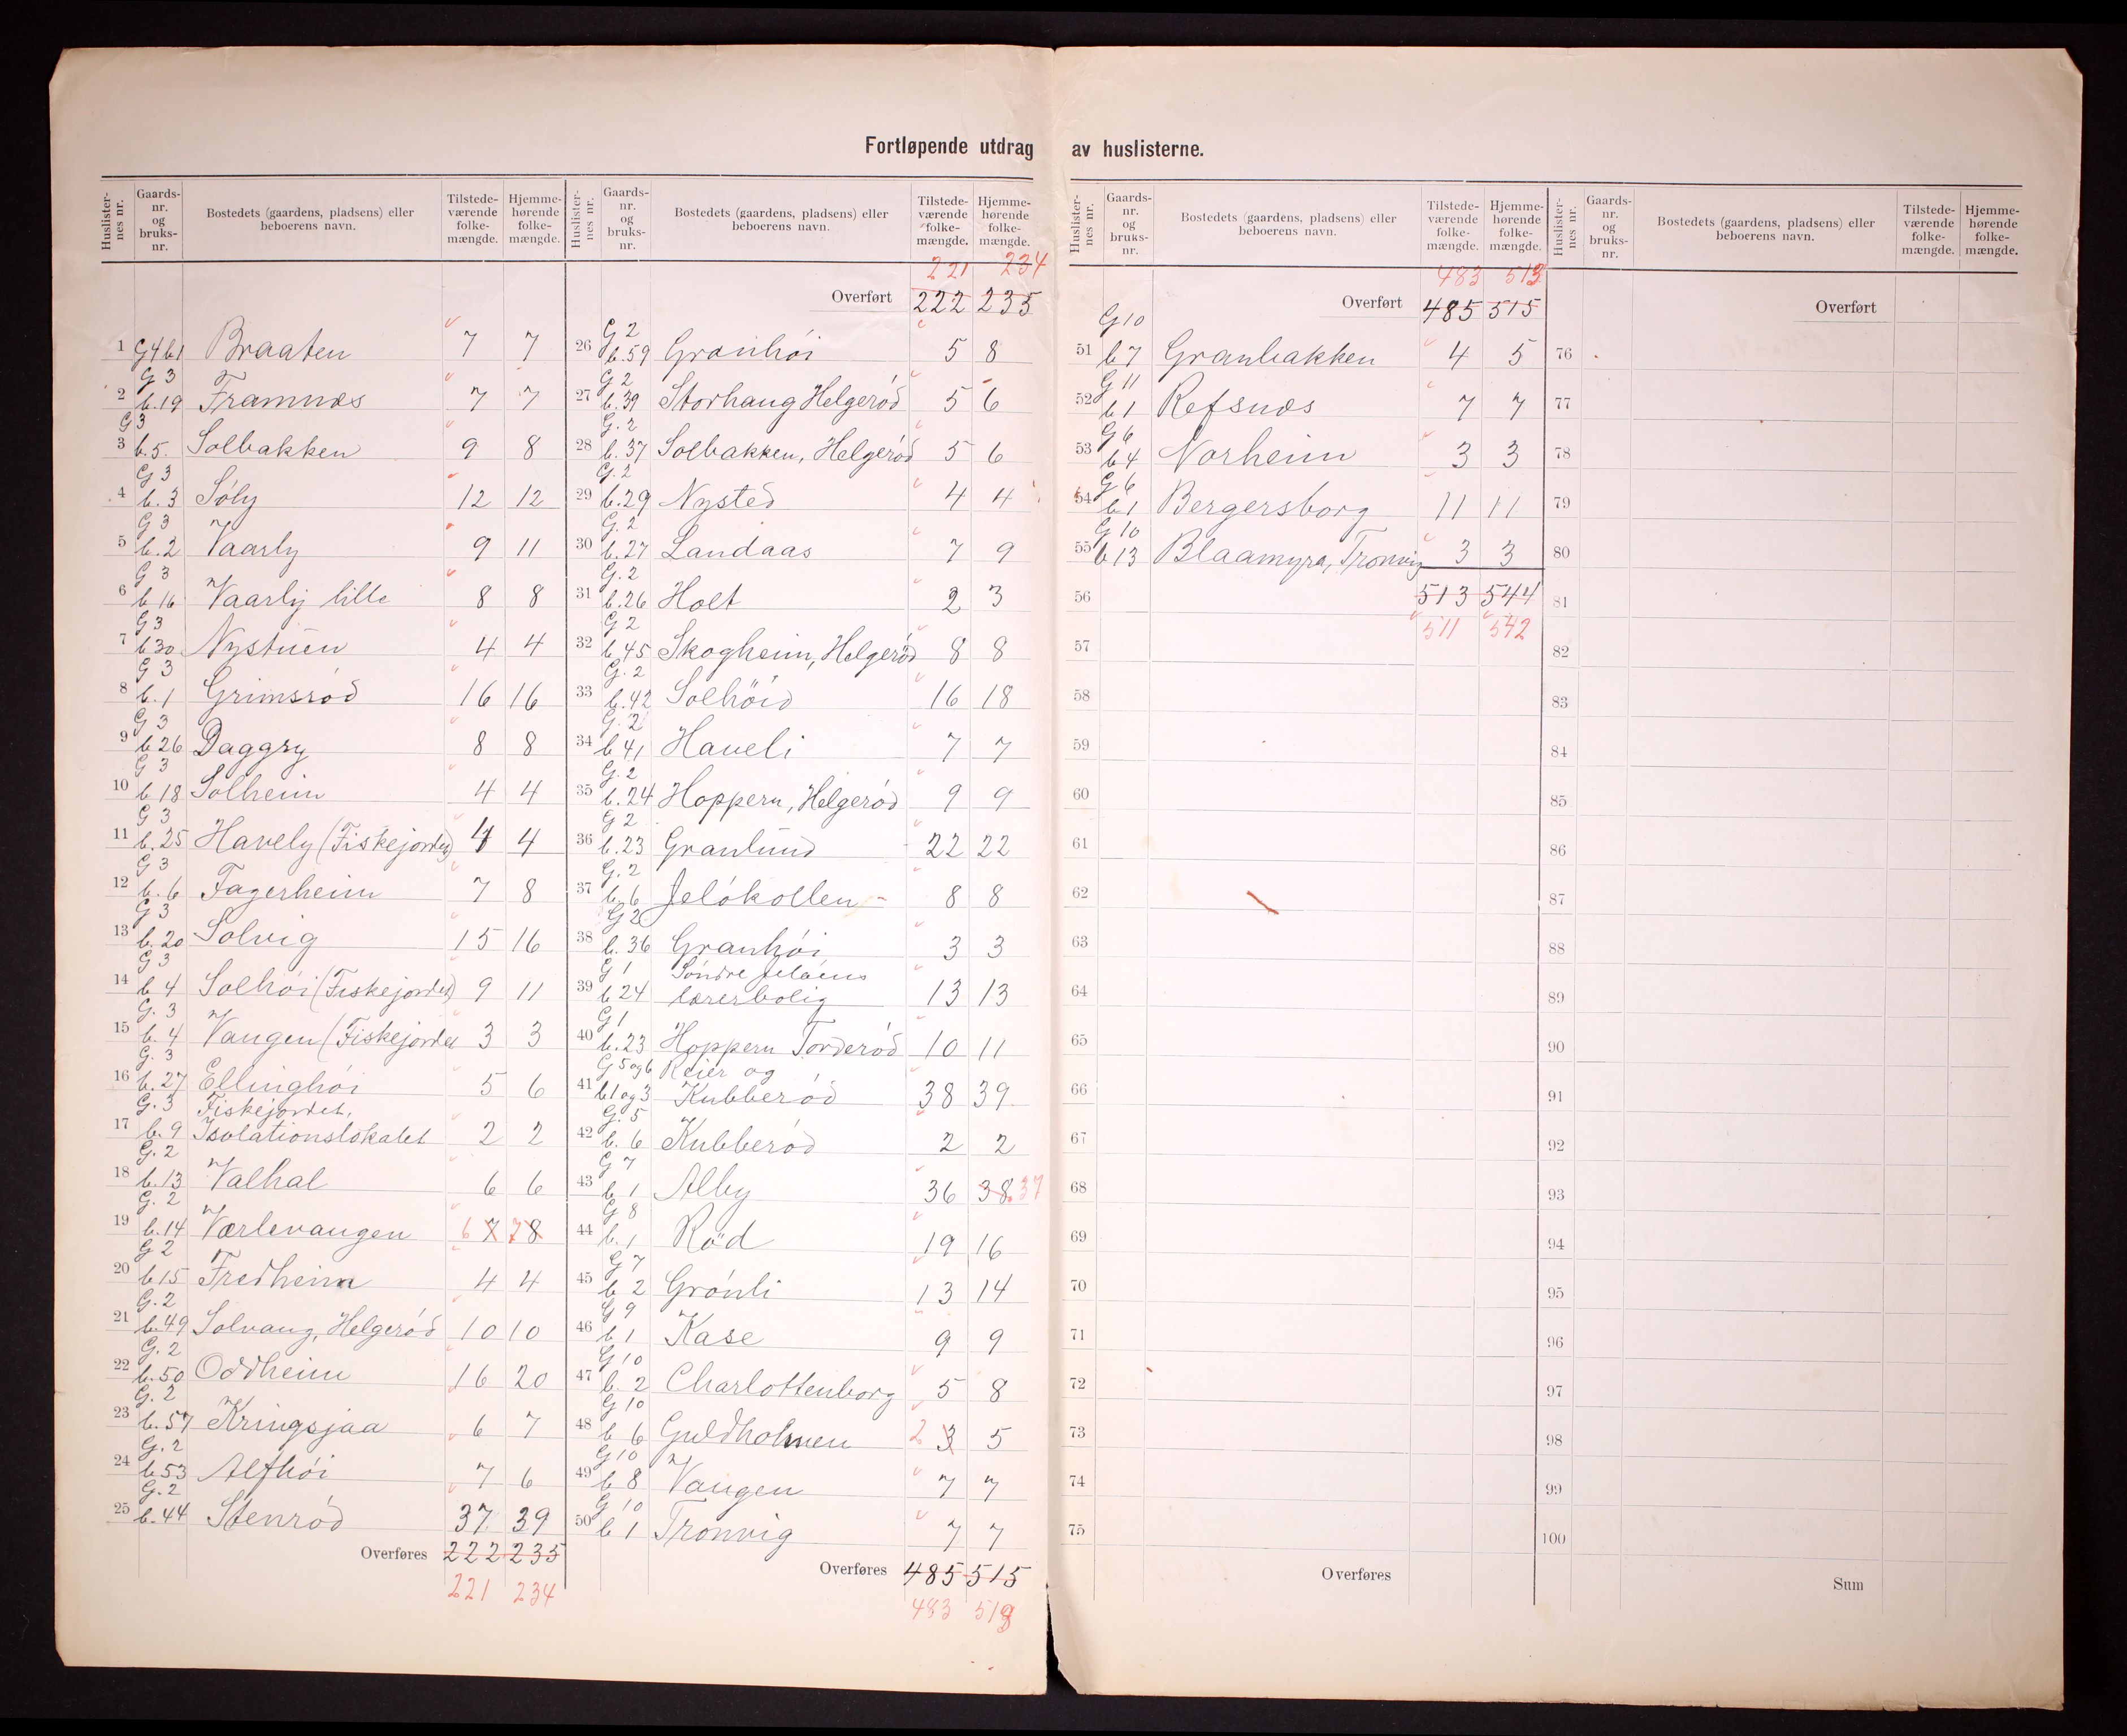 Fortløpende utdrag av huslisterne.
Huslister-nes nr. Gaards-nr. og bruks-nr. Bostedets (gaardens, pladsens) eller beboerens navn. Tilstede-værende folke-mængde. Hjemme-hørende folke-mængde.
1 G4 b1 Braaten 7 7
2 G3 b.19 Framnæs 7 7
3 G3 b.5. Solbakken 9 8
4 G3 b.3 Söly 12 12
5 G3 b.2 Vaarly 9 11
6 G3 b16 Vaarly lille 8 8
7 G3 b30 Nystuen 4 4
8 G3 b.1 Grimsröd 16 16
9 G3 b26 Daggry 8 8
10 G3 b18 Solheim 4 4
11 G3 b.25 Havely (Fiskejordet) 4 4
12 G3 b.6 Fagerheim 7 8
13 G3 b.20 Solvig 15 16
14 G3 b4 Solhöi (Fiskejordet) 9 11
15 G.3 b.4 Vangen (Fiskejordet 3 3
16 G.3 b.27 Ellinghöi 5 6
17 G.3 b.9 Fiskejordet, Isolationslokalet 2 2
18 G.2 b.13 Valhal 6 6
19 G.2 b.14 Værlevangen 6 7 7 8
20 G2 b15 Fredheim 4 4
21 G.2 b.49 Solvang, Helgeröd 10 10
22 G.2 b.50 Oddheim 16 20
23 G.2 b.57 Kringsjaa 6 7
24 G.2 b53 Alfhöi 7 6
25 G.2 b.44 Stenröd 37 39
Overføres 222 235
221 234
Huslister-nes nr. Gaards-nr. og bruks-nr. Bostedets (gaardens, pladsens) eller beboerens navn. Tilstede-værende folke-mængde. Hjemme-hørende folke-mængde.
221 234
Overført 222 235
26 G2 b.59 Granhöi 5 8
27 G2 b.39 Storhaug Helgeröd 5 6
28 G.2 b.37 Solbakken, Helgeröd 5 6
29 G.2 b.29 Nysted 4 4
30 G.2 b.27 Landaas 7 9
31 G.2 b.26 Holt 2 3
32 G2 b.45 Skogheim, Helgeröd 8 8
33 G.2 b.42 Solhöid 16 18
34 G.2 b41 Haveli 7 7
35 G.2 b.24 Hoppern, Helgeröd 9 9
36 G2 b.23 Granlund 22 22
37 G.2 b.6 Jelökollen 8 8
38 G2 b.36 Granhöi 3 3
39 G1 b24 Söndre Jelöens lærerbolig 13 13
40 G1 b.23 Hoppern Torderöd 10 11
41 G5og6 b1og3 Reier og Kubberöd 38 39
42 G.5 b.6 Kubberöd 2 2
43 G7 b1 Alby 36 38 37
44 G8 b.1 Röd 19 16
45 G7 b2 Grönli 13 14
46 G9 b1 Kase 9 9
47 G10 b.2 Charlottenborg 5 8
48 G10 b6 Guldholmen 2 3 5
49 G10 b8 Vangen 7 7
50 G10 b1 Tronvig 7 7
Overføres 485 515
483 513
Huslister-nes nr. Gaards-nr. og bruks-nr. Bostedets (gaardens, pladsens) eller beboerens navn. Tilstede-værende folke-mængde. Hjemme-hørende folke-mængde.
483 513
Overført 485 515
51 G10 b7 Granbakken 4 5
52 G11 b1 Refsnæs 7 7
53 G6 b4 Norheim 3 3
54 G6 b1 Bergersborg 11 11
55 G10 b13 Blaamyra, Tronvig 3 3
56 513 544
511 542
57
58
59
60
61
62
63
64
65
66
67
68
69
70
71
72
73
74
75
Overføres
Huslister-nes nr. Gaards-nr. og bruks-nr. Bostedets (gaardens, pladsens) eller beboerens navn. Tilstede-værende folke-mængde. Hjemme-hørende folke-mængde.
Overført
76
77
78
79
80
81
82
83
84
85
86
87
88
89
90
91
92
93
94
95
96
97
98
99
100
Sum